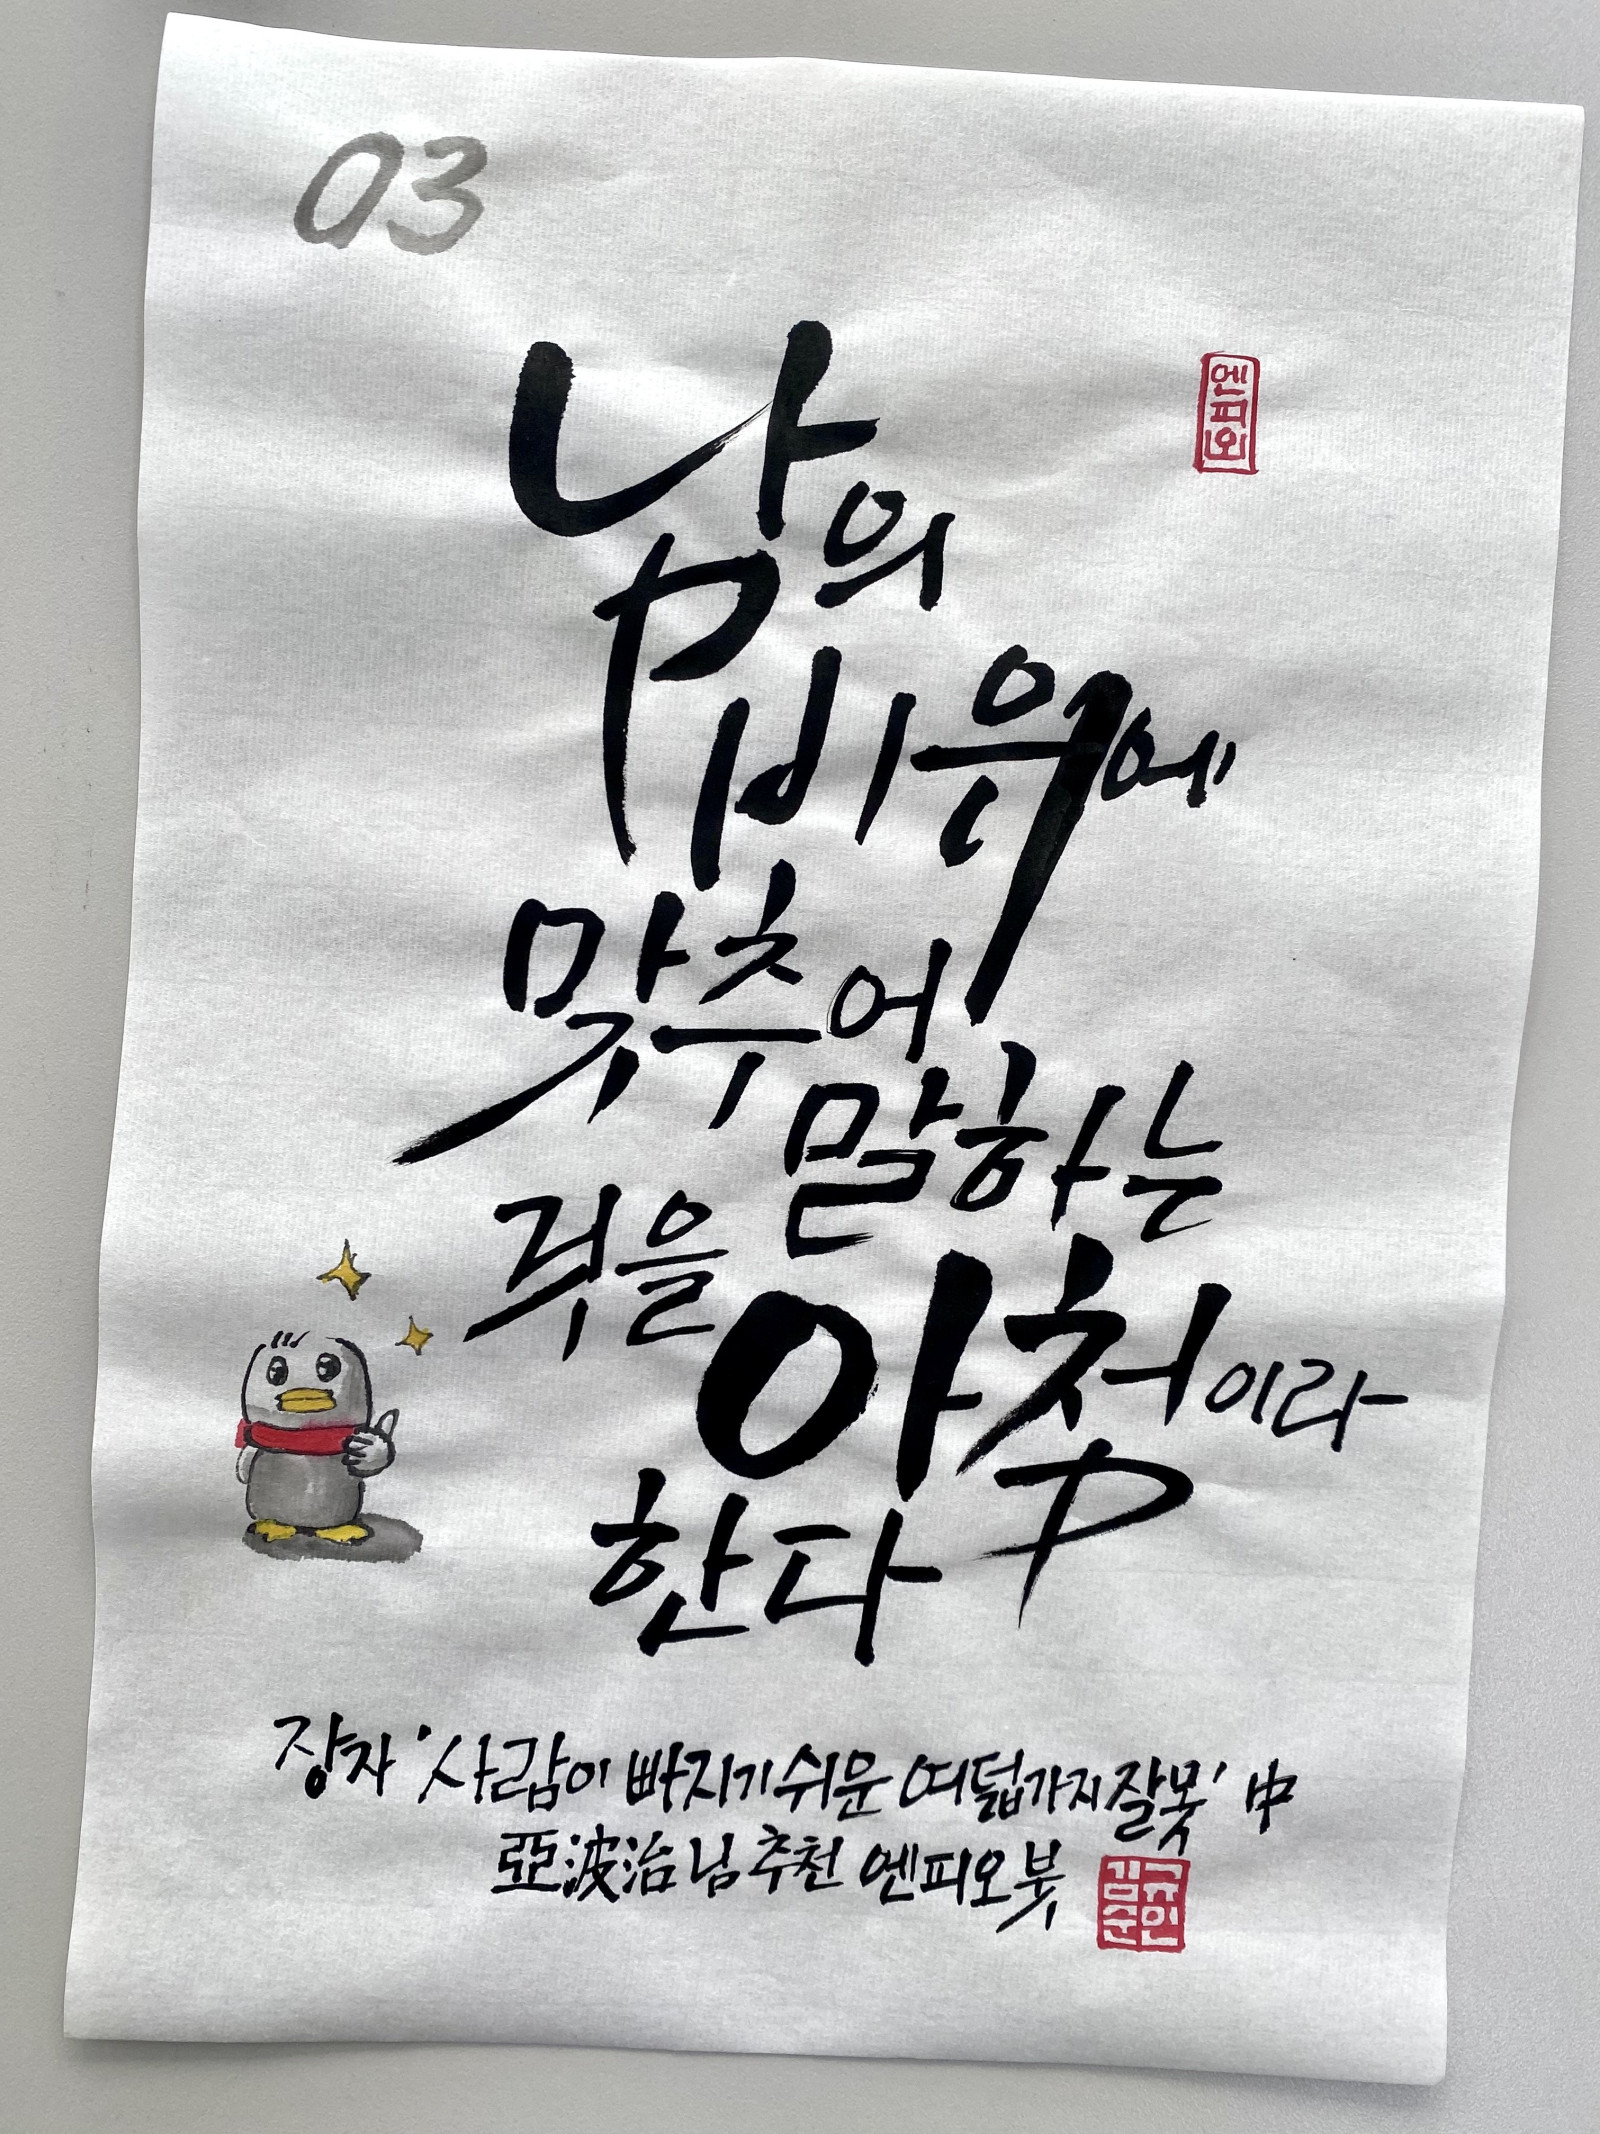 03
엔피오
남의
비위에
맞추어
말하는
것을
아첨이라
한다
장자 '사람이 빠지기 쉬운 여덟가지 잘못' 中
亞波治님 추천 엔피오 붓